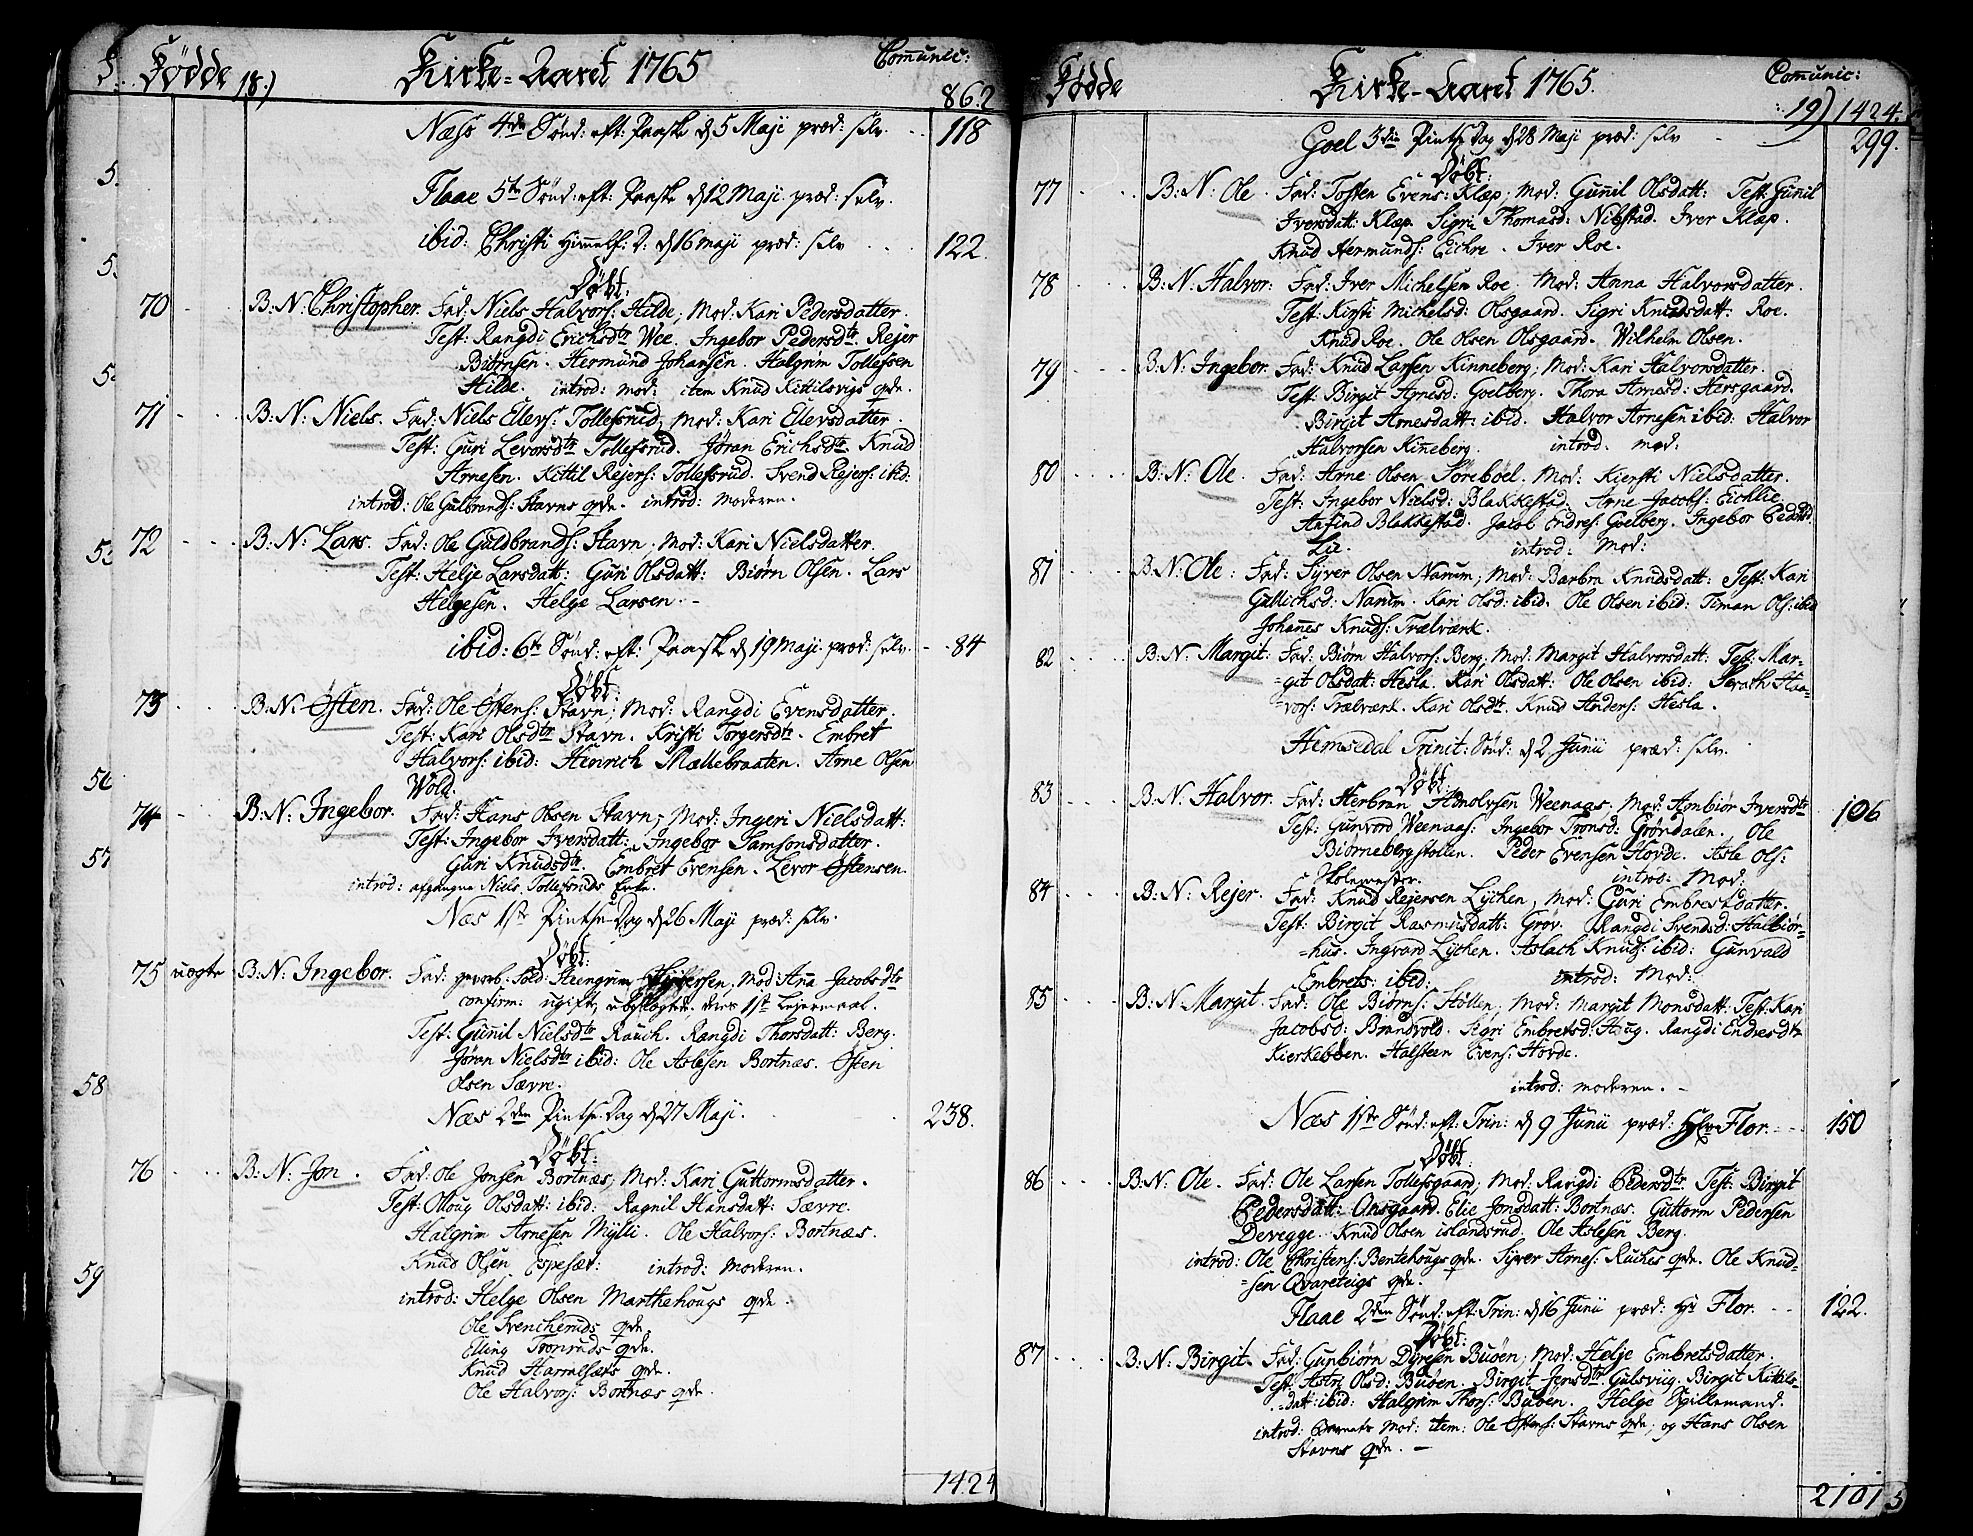 Fødde 18.) Kirke-Aaret 1765 Comunic:
862
Næss 4de Sønd: eft: Paaske d 5 Maji præd: selv. 118
Flaae 5te Sønd: eft: Paaske d 12 Maji præd: selv.
ibid: Christi Himelf: D: d 16 maji præd: selv 122.
Døbt:
70 B: N: Christopher. Fad: Niels Halvors: Hilde; Mod: Kari Pedersdatter.
Test: Rangdi Erichsdtr Wee. Ingebor Pedersdtr. Rejer
Biørnsen. Hermund Johansen. Halgrim Tollefsen
Hilde. introd: mod: item Knud Kittilsvigs qde.
71 B: N: Niels. Fad: Niels Ellevs: Tollefsrud, Mod: Kari Ellevsdatter.
Test: Guri Levorsdtr Tollefsrud. Jøran Erichsdtr. Knud
Arnesen. Kittil Rejers: Tollefsrud. Svend Rejers: ibid:
introd: Ole Gulbrands: Stavns qde. introd: moderen.
72 B: N: Lars. Fad: Ole Guldbrands: Stavn; Mod: Kari Nielsdatter.
Test: Helje Larsdatt: Guri Olsdatt: Biørn Olsen. Lars
Helgesen. Helge Larsen.
ibid: 6te Sønd: eft: Paaske d 19 Maji præd: selv. 84
Døbt:
73 B: N: Østen. Fad: Ole Østens: Stavn; Mod: Rangdi Evensdatter.
Test: Kari Olsdtr Stavn. Kristi Torgersdtr. Embret
Halvors: ibid: Henrich Mællebraaten. Arne Olsen
Wold.
74 B: N: Ingebor. Fad: Hans Olsen Stavn; Mod: Ingeri Nielsdatt:
Test: Ingebor Iversdatt: Ingebor Samsonsdatter.
Guri Knudsdtr. Embret Evensen. Levor Østensen.
introd: afgangne Niels Tollefsruds Enke.
Næs 1ste Pintse-Dag d 26 Maji præd: selv.
Døbt:
75 uægte B: N: Ingebor. Fad: gevorb: Sold: Steingrim; Mod: Ana Jacobsdtr
confirm: ugift, deres 1ste Lejermaal.
Test: Gunil Nielsdtr Rauch. Rangdi Thorsdatt: Berg.
Jøran Nielsdtr ibid: Ole Aslesen Bortnæs. Østen
Olsen Sævre.
Næs 2den Pintse-Dag d 27 Maji. 238.
Døbt:
76 B: N: Jon. Fad: Ole Jonsen Bortnæs; Mod: Kari Guttormsdatter.
Test: Oloug Olsdatt: ibid: Ragnil Hansdatt: Sævre.
Halgrim Arnesen Mylli. Ole Halvors: Bortnæs.
Knud Olsen Espesæt: introd: Moderen.
introd: Helge Olsen Marthehougs qde.
Ole Svencheruds qde.
Elling Tronruds qde.
Knud qde.
Ole Halvors: Bortnæs qde.
1424
5.
5.
56
57
58
59
Fødde Kirke-Aaret 1765. Comunic:
19) 1424.
Goel 3die Pintse Dag d 28 Maji præd: selv 299.
Døbt:
77 B: N: Ole. Fad: Tosten Evens: Klæp; Mod: Gunil Olsdatt: Test: Gunil
Iversdatt: Klæp. Sigri Thomasd: Nibstad. Iver Klæp.
Knud Hermunds: Eickre. Iver Roe.
78 B: N: Halvor: Fad: Iver Michelsen Roe. Mod: Anna Halvorsdatter.
Test: Kirsti Michelsd: Olsgaard. Sigri Knudsdatt: Roe.
Knud Roe. Ole Olsen Olsgaard. Wilhelm Olsen.
79 B: N: Ingebor. Fad: Knud Larsen Kinneberg; Mod: Kari Halvorsdatter.
Test: Birgit Arnesd: Goelberg. Thora Arnesd: Hersgaard.
Birgit Arnesdatt: ibid. Halvor Arnesen ibid: Halvor
Halvorsen Kineberg. introd: mod:
80 B: N: Ole. Fad: Arne Olsen Sørebøel, Mod: Kiersti Nielsdatter.
Test: Ingebor Nielsd: Blakkestad. Arne Jacobs: Eichlie
Anfind Blakkestad. Jacob Endres: Goelberg. Ingebor Pedersd
Lie. introd: Mod:
81 B: N: Ole: Fad: Syver Olsen Narum; Mod: Barbra Knudsdatt: Test: Kari
Gullichsd: Narum. Kari Olsd: ibid. Ole Olsen ibid: Timan Ols: ibid
Johanes Knuds: Trælværk.
82 B: N: Margit: Fad: Biørn Halvors: Berg, Mod: Margit Halvorsdatt: Test: Mar=
=git Olsdatt: Hesla. Kari Olsdatt: Ole Olsen ibid: Haa=
=vors: Trælværk. Kari Olsdtr. Knud Anders: Hesla.
Hemsedal Trinit: Sønd: d 2 Junii præd: selv.
Døbt:
83 B: N: Halvor. Fad: Herbran Weenaas, Mod: Ambiør Iversdtr 106
Test: Gunvord Weenaas: Ingebor Tronsd: Grøndalen. Ole
Biørnebergstollen. Peder Evensen Hovde. Asle Ols:
Skolemester. introd: Mod:
84 B: N: Rejer. Fad: Knud Rejersen Lychen, Mod: Guri Embretsdatter.
Test: Birgit Rasmusdatt: Grøv. Rangdi Svendsd: Halbiør=
=hus. Ingvard Lychen. Aslach Knuds: ibid: Gunvald
Embrets: ibid: introd: Mod:
85 B: N: Margit. Fad: Ole Biørns: Stølen; Mod: Margit Monsdatt: Test: Kari
Jacobsd: Brandvold. Sigri Embretsd: Haug. Rangdi Endresdtr
Kierkebøen. Halsteen Evens: Hovde.
introd: moderen.
Næs 1ste Sønd: eft: Trin: d 9 Junii præd: Hr Flor. 150
Døbt:
86 B: N: Ole. Fad: Ole Larsen Tollefsgaard; Mod: Rangdi Pedersdtr. Test: Birgit
Pedersdatt: Ansgaard. Elie Jonsdatt: Bortnæs. Guttorm Pedersen
Devegge. Knud Olsen islandsrud. Ole Aslesen Berg.
introd: Ole Christens: Bentehougs qde. Syver Arnes: Ruches qde. Ole Knud=
=sen Qvareteigs qde.
Flaae 2den Sønd: eft: Trin: d 16 Junii præd: Hr Flor. 122.
Døbt:
87 B: N: Birgit. Fad: Gunbiørn Dyresen Buøen; Mod: Helje Embretsdatter.
Test: Astri Olsd: Buøen. Birgit Jensdtr Gulsvig. Birgit Kittils=
datt: ibid: Halgrim Thors: Buøen. Helge Spillemand.
introd: Barnets Mod: item: Ole Østens: Stavns qde; og Hans Olsen
Stavns qde.
2101